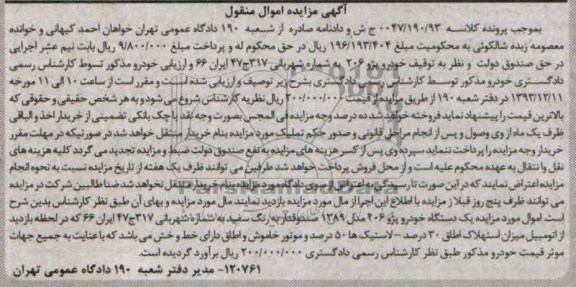 آگهی مزایده اموال منقول
بموجب پرونده کلاسه ۰۰۴۷/۱۹۰/۹۳ ج ش و دادنامه صادره از شعبه ۱۹۰ دادگاه عمومی تهران خواهان احمد کیهانی و خوانده
معصومه زبده شالکوئی به محکومیت مبلغ ۱۹۶/۱۹۳/۴۰۴ ریال در حق محکوم له و پرداخت مبلغ ۹/۸۰۰/۰۰۰ ریال بابت نیم عشر اجرایی
در حق صندوق دولت و نظر به توقیف خودرو پژو ۲۰۶ به شماره شهربانی ۳۱۷ج۴۷ ایران ۶۶ و ارزیابی خودرو مذکور توسط کارشناس رسمی
دادگستری خودرو مذکور توسط کارشناس رسمی دادگستری بشرح زیر توصیف و ارزیابی شده است و مقرر است از ساعت ۱۰ الی ۱۱ مورخه
۱۳۹۳/۱۲/۱۱ در دفتر شعبه ۱۹۰ از طریق مزایده از قیمت ۲۰۰/۰۰۰/۰۰۰ ریال نظریه کارشناس شروع می شود و به هر شخص حقیقی و حقوقی که
بالاترین قیمت را پیشنهاد نماید فروخته خواهد شد ده درصد وجه مزایده فی المجلس بصورت وجه نقد یا چک بانکی تضمینی از خریدار اخذ و الباقی
ظرف یک ماه از وی وصول و پس از انجام مراحل قانونی و صدور حکم تملیک مورد مزایده بنام خریدار منتقل خواهد شد در صورتیکه در مهلت مقرر
خریدار وجه مزایده را پرداخت ننماید سپرده وی پس از کسر هزینه های مزایده به نفع صندوق دولت ضبط و مزایده تجدید می گردد کلیه هزینه های
نقل و انتقال به عهده محکوم علیه است و از محل فروش پرداخت خواهد شد طرفین می توانند ظرف یک هفته از تاریخ مزایده نسبت به نحوه انجام
مزایده اعتراض نمایند که در این صورت تا رسیدگی به اعتراض از سوی دادگاه مورد مزایده به نام خریدار منتقل نخواهد شد ضمنا طالبین شرکت در مزایده
می توانند ظرف پنج روز قبل از مزایده با اطلاع این اجرا از مال مورد مزایده بازدید نمایند مال مورد مزایده و بهای آن طبق نظر کارشناس بدین شرح
است. اموال مورد مزایده یک دستگاه خودرو پژو ۲۰۶ مدل ۱۳۸۹ صندوقدار به رنگ سفید به شماره شهربانی ۳۱۷ج۴۷ ایران ۶۶ که در لحظه بازدید
از اتومبیل میزان استهلاک اطاق ۳۰ درصد -لاستیک ها ۵۰ درصد و موتور خاموش و اطاق دارای خط و خش می باشد که با عنایت به جمیع جهات
موثر قیمت خودرو مذکور طبق نظر کارشناس رسمی دادگستری ۲۰۰/۰۰۰/۰۰۰ ریال برآورد گردیده است.
۱۲۰۷۶۱- مدیر دفتر شعبه ۱۹۰ دادگاه عمومی تهران